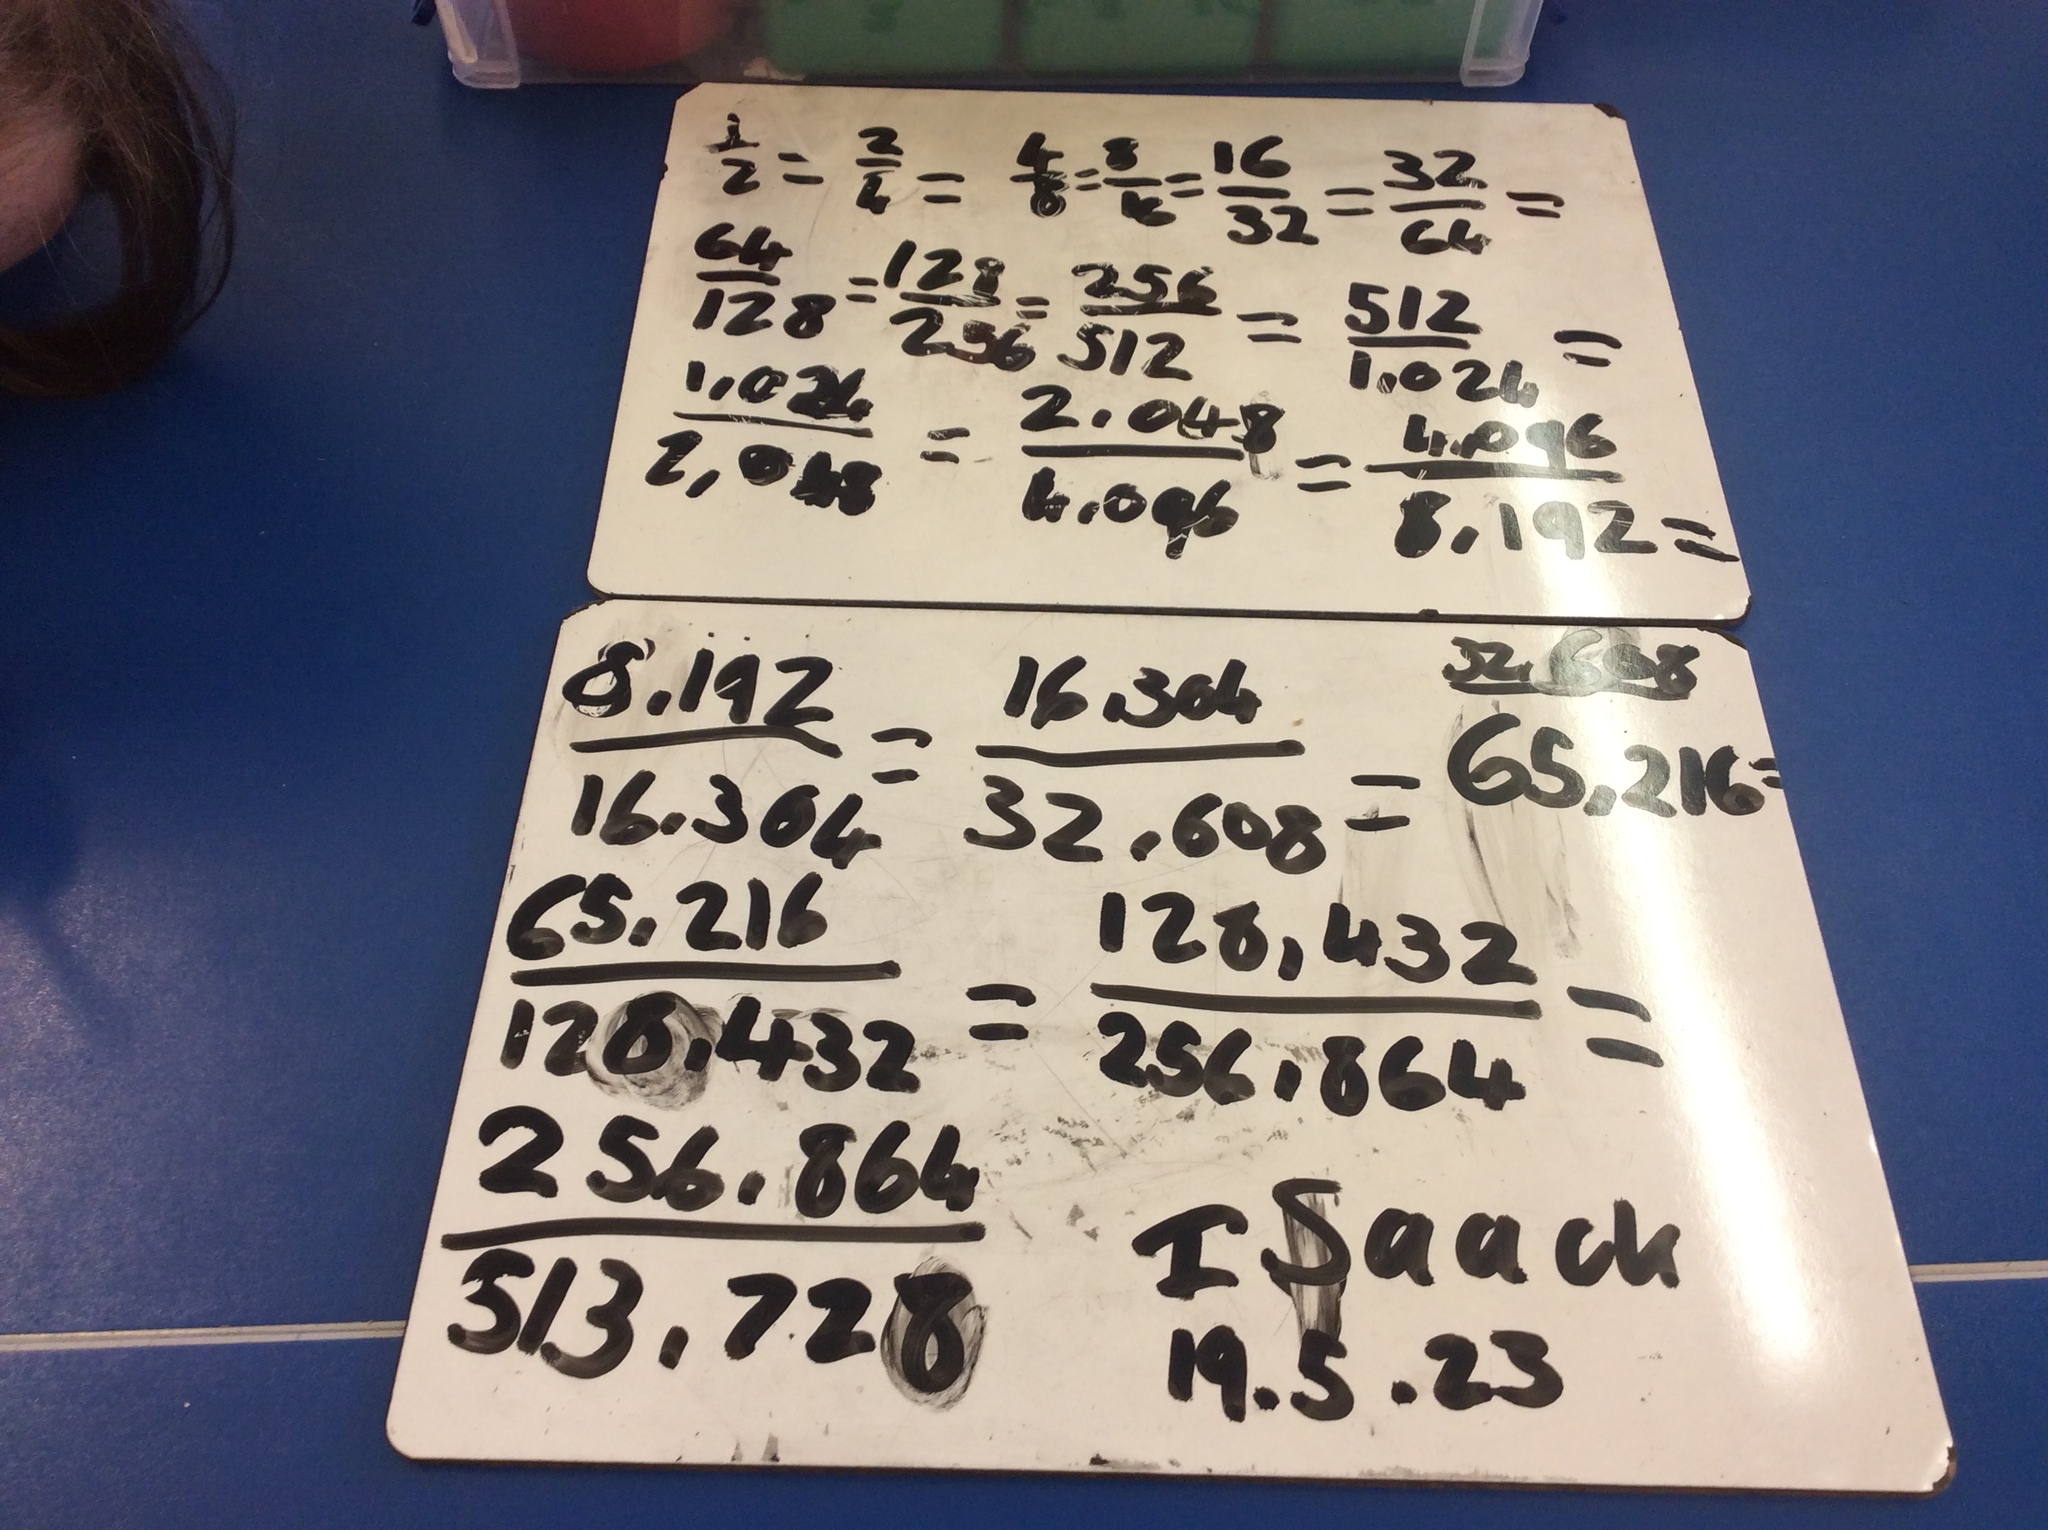 1/2 = 2/4 = 4/8 = 8/16 = 16/32 = 32/64 =
64/128 = 128/256 = 256/512 = 512/1,024 =
1,024/2,048 = 2,048/4,096 = 4,096/8,192 =
8,192/16,304 = 16,304/32,608 = 32,608/65,216 =
65,216/128,432 = 128,432/256,864 =
256,864/513,728
ISaack
19.5.23